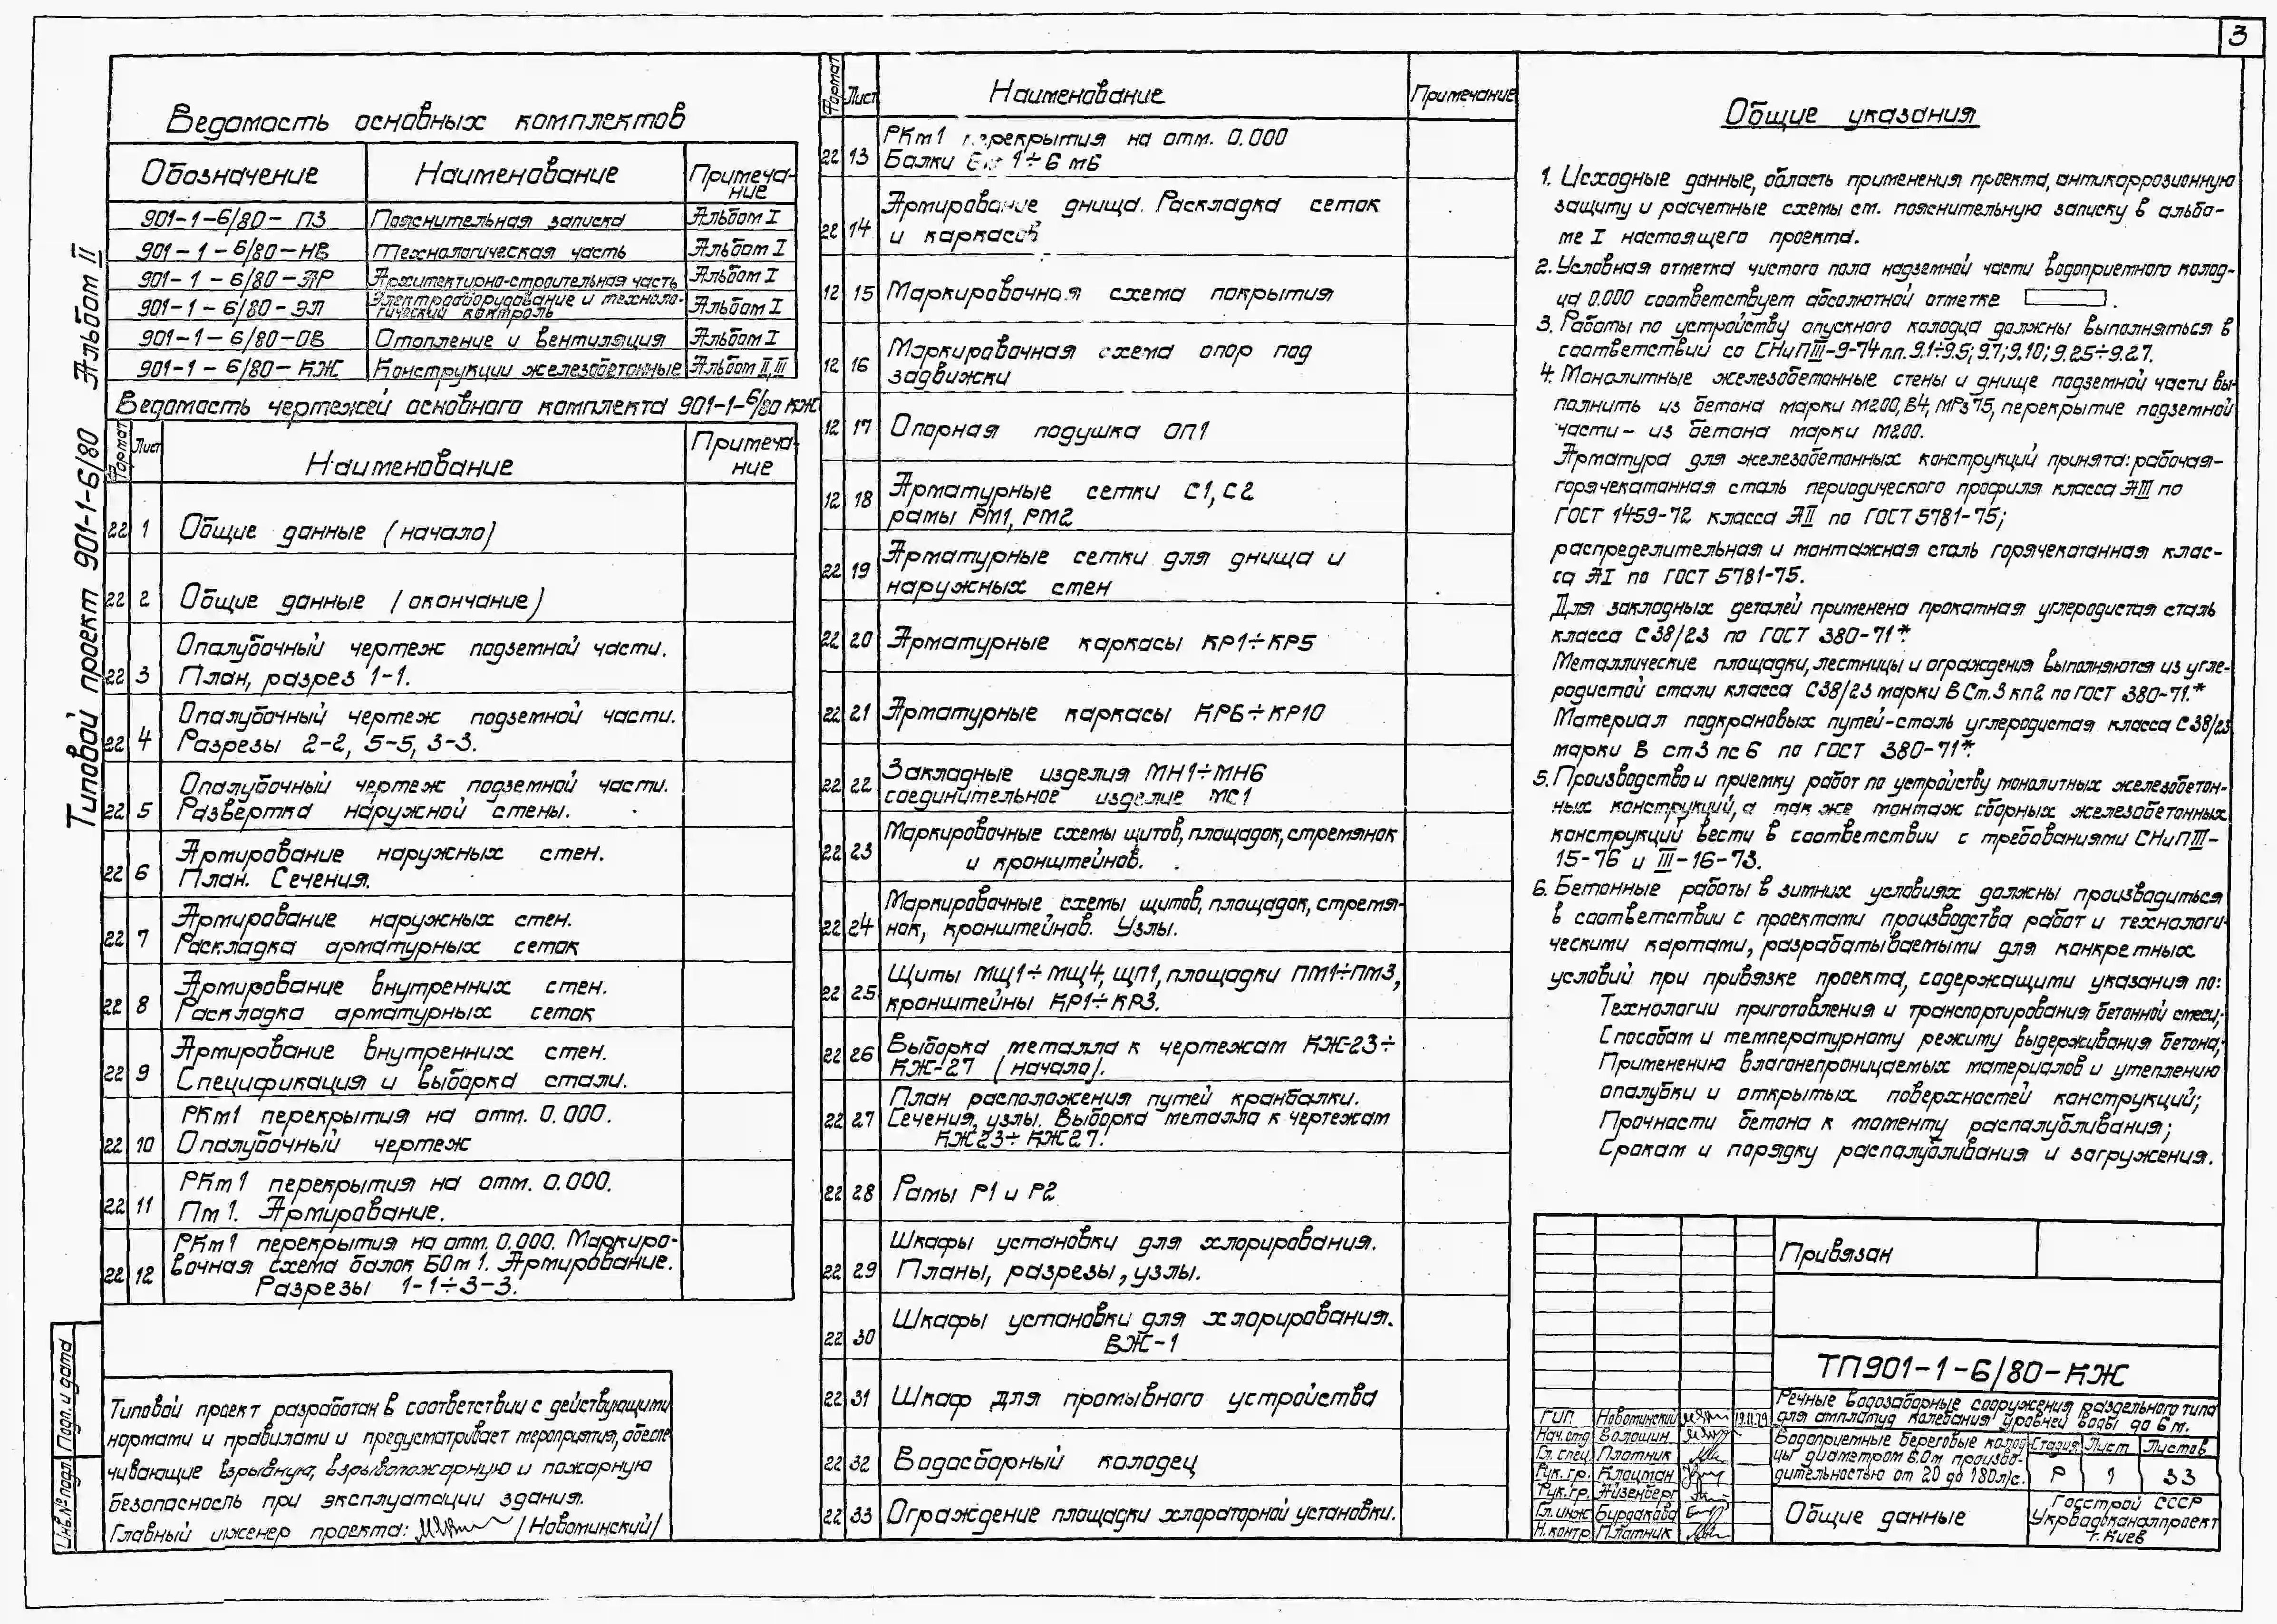 3
Типовой проект 901-1-6/80 Альбом II
Ведомость основных комплектов
Обозначение Наименование Примеча-
ние
901-1-6/80- ПЗ Пояснительная записка Альбом I
901-1-6/80-НВ Технологическая часть Альбом I
901-1-6/80-АР Архитектурно-строительная часть Альбом I
901-1-6/80-ЭЛ Электрооборудование и техноло- Альбом I
гический контроль
901-1-6/80-ОВ Отопление и вентиляция Альбом I
901-1-6/80-КЖ Конструкции железобетонные Альбом II, III
Ведомость чертежей основного комплекта 901-1-6/80 КЖ
Формат Лист Наименование Примеча-
ние
22 1 Общие данные (начало)
22 2 Общие данные (окончание)
Опалубочный чертеж подземной части.
22 3 План, разрез 1-1.
Опалубочный чертеж подземной части.
22 4 Разрезы 2-2, 5-5, 3-3.
Опалубочный чертеж подземной части.
22 5 Развертка наружной стены.
Армирование наружных стен.
22 6 План. Сечения.
Армирование наружных стен.
22 7 Раскладка арматурных сеток
Армирование внутренних стен.
22 8 Раскладка арматурных сеток
Армирование внутренних стен.
22 9 Спецификация и выборка стали.
РКм1 перекрытия на отм. 0.000.
22 10 Опалубочный чертеж
РКм1 перекрытия на отм. 0.000.
22 11 Пм1. Армирование.
РКм1 перекрытия на отм. 0.000. Маркиро-
вочная схема балок БОм1. Армирование.
22 12 Разрезы 1-1÷3-3.
Типовой проект разработан в соответствии с действующими
нормами и правилами и предусматривает мероприятия, обеспе-
чивающие взрывную, взрывопожарную и пожарную
безопасность при эксплуатации здания.
Главный инженер проекта: /Новоминский/
Подп. и дата
Инв.№ подл.
Формат Лист Наименование Примечание
РКм1 перекрытия на отм. 0.000
22 13 Балки 1÷6 мБ
Армирование днища. Раскладка сеток
22 14 и каркасов
12 15 Маркировочная схема покрытия
Маркировочная схема опор под
12 16 задвижки
12 17 Опорная подушка ОП1
12 18 Арматурные сетки С1, С2
рамы РМ1, РМ2
Арматурные сетки для днища и
22 19 наружных стен
22 20 Арматурные каркасы КР1÷КР5
22 21 Арматурные каркасы КР6÷КР10
Закладные изделия МН1÷МН6
22 22 соединительное изделие МС1
Маркировочные схемы щитов, площадок, стремянок
22 23 и кронштейнов.
Маркировочные схемы щитов, площадок, стремя-
22 24 нок, кронштейнов. Узлы.
Щиты МЩ1÷МЩ4, ЩП1, площадки ПМ1÷ПМ3,
22 25 кронштейны КР1÷КР3.
22 26 Выборка металла к чертежам КЖ-23÷
КЖ-27 (начало).
План расположения путей кранбалки.
22 27 Сечения, узлы. Выборка металла к чертежам
КЖ23÷КЖ27.
22 28 Рамы Р1 и Р2
Шкафы установки для хлорирования.
22 29 Планы, разрезы, узлы.
Шкафы установки для хлорирования.
22 30 ВЖ-1
22 31 Шкаф для промывного устройства
22 32 Водосборный колодец
22 33 Ограждение площадки хлораторной установки.
Общие указания
1. Исходные данные, область применения проекта, антикоррозионную
защиту и расчетные схемы см. пояснительную записку в альбо-
ме I настоящего проекта.
2. Условная отметка чистого пола надземной части водоприемного колод-
ца 0.000 соответствует абсолютной отметке .
3. Работы по устройству опускного колодца должны выполняться в
соответствий со СНиПIII-9-74 пл. 9.1÷9.5; 9.7; 9.10; 9.25÷9.27.
4. Монолитные железобетонные стены и днище подземной части вы-
полнить из бетона марки М200, В4, МРз 75, перекрытие подземной
части- из бетона марки М200.
Арматура для железобетонных конструкций принята: рабочая-
горячекатанная сталь периодического профиля класса АIII по
ГОСТ 1459-72 класса АII по ГОСТ 5781-75;
распределительная и монтажная сталь горячекатанная клас-
са АI по ГОСТ 5781-75.
Для закладных деталей применена прокатная углеродистая сталь
класса С38/23 по ГОСТ 380-71*.
Металлические площадки, лестницы и ограждения выполняются из угле-
родистой стали класса С38/23 марки ВСт.3кп2 по ГОСТ 380-71.*
Материал подкрановых путей-сталь углеродистая класса С38/23
марки В ст3 пс6 по ГОСТ 380-71*.
5. Производство и приемку работ по устройству монолитных железобетон-
ных конструкций, а так же монтаж сборных железобетонных
конструкций вести в соответствии с требованиями СНиПIII-
15-76 и III-16-73.
6. Бетонные работы в зимних условиях должны производиться
в соответствии с проектами производства работ и технологи-
ческими картами, разрабатываемыми для конкретных
условий при привязке проекта, содержащими указания по:
Технологии приготовления и транспортирования бетонной смеси;
Способам и температурному режиму выдерживания бетона;
Применению влагонепроницаемых материалов и утеплению
опалубки и открытых поверхностей конструкций;
Прочности бетона к моменту распалубливания;
Срокам и порядку распалубливания и загружения.
Привязан
ТП901-1-6/80-КЖ
Речные водозаборные сооружения раздельного типа
для амплитуд колебания уровней воды до 6 м.
ГИП Новоминский 19.11.79
Нач.отд Волошин
Гл. спец Плотник
Рук. гр. Клоцман
Рук. гр. Айзенберг
Гл. инж Бурдакова
Н. контр Плотник
Водоприемные береговые колод-
цы диаметром 6.0м произво-
дительностью от 20 до 180л/с.
Стадия Лист Листов
Р 1 33
Общие данные
Госстрой СССР
Укрводоканалпроект
г. Киев